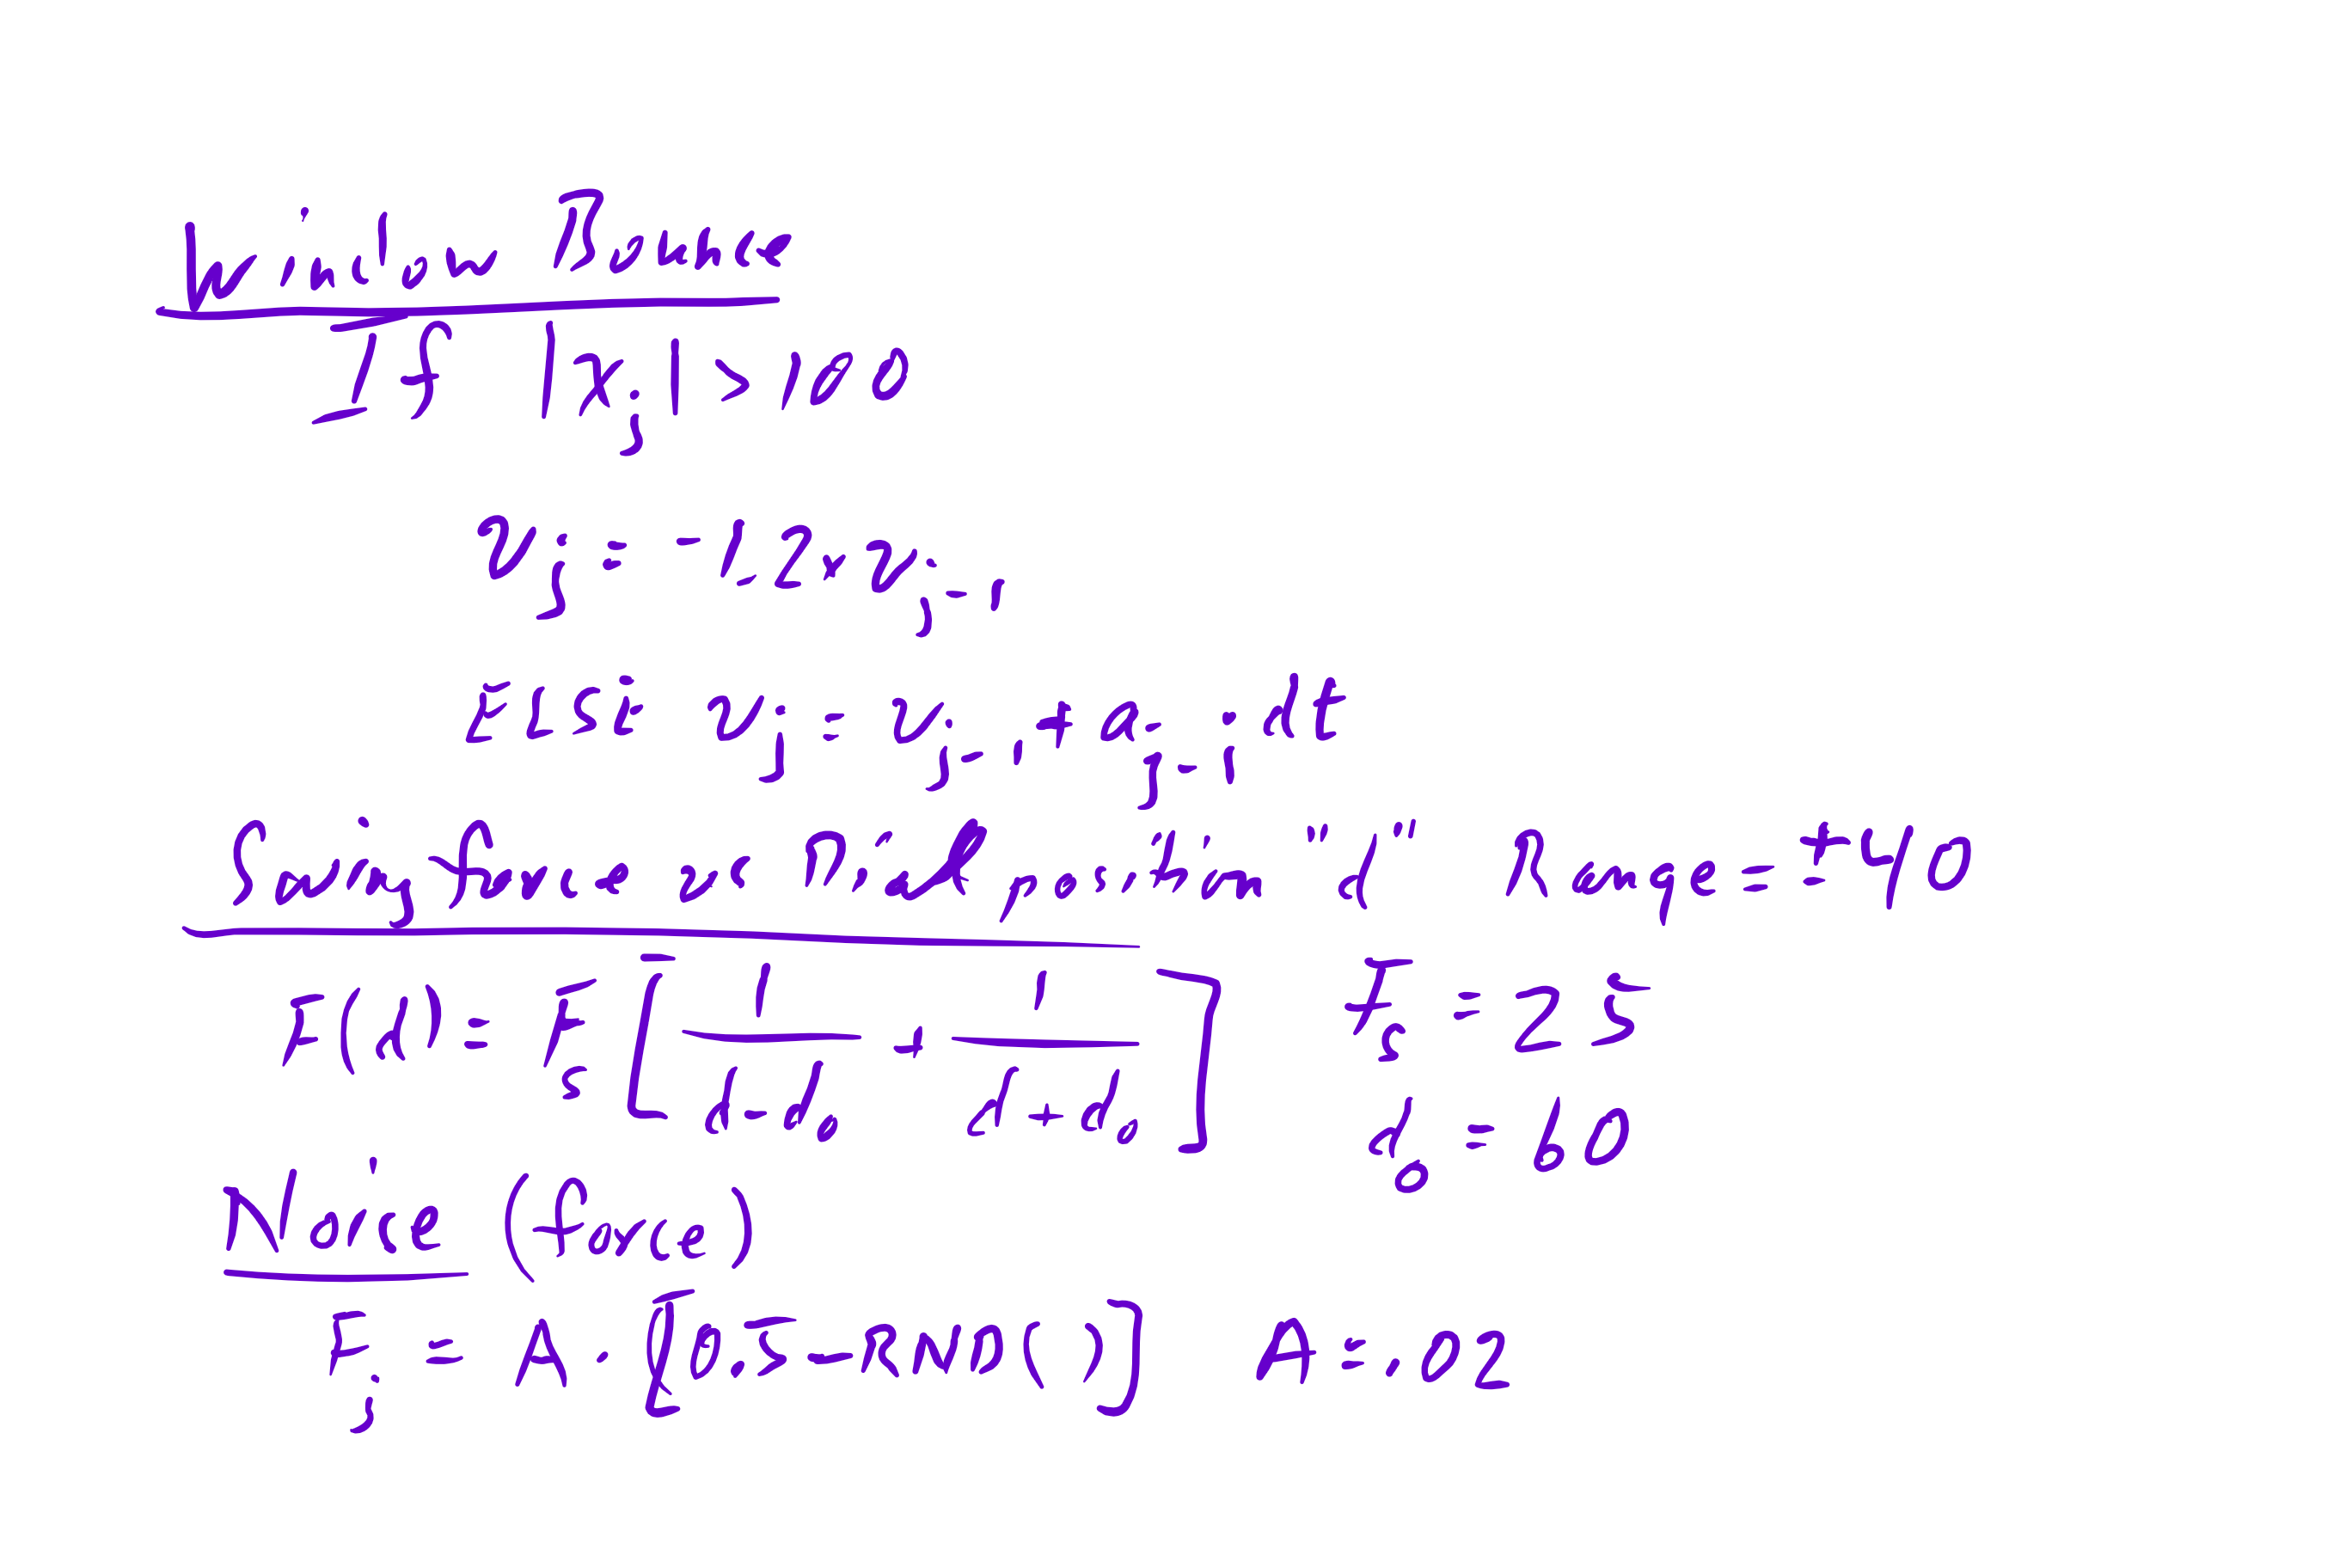 Window Bounce
If |x_j| > 100
v_j = -1.2 * v_{j-1}
Else v_j = v_{j-1} + a_{j-1} · dt
Swing force vs Pivot position "d" Range = ±40
F(d) = F_s [ 1/(d-d_0) + 1/(d+d_0) ] F_s = 25
d_0 = 60
Noise (force)
F_j = A · [0.5 - RND( )] A = .02